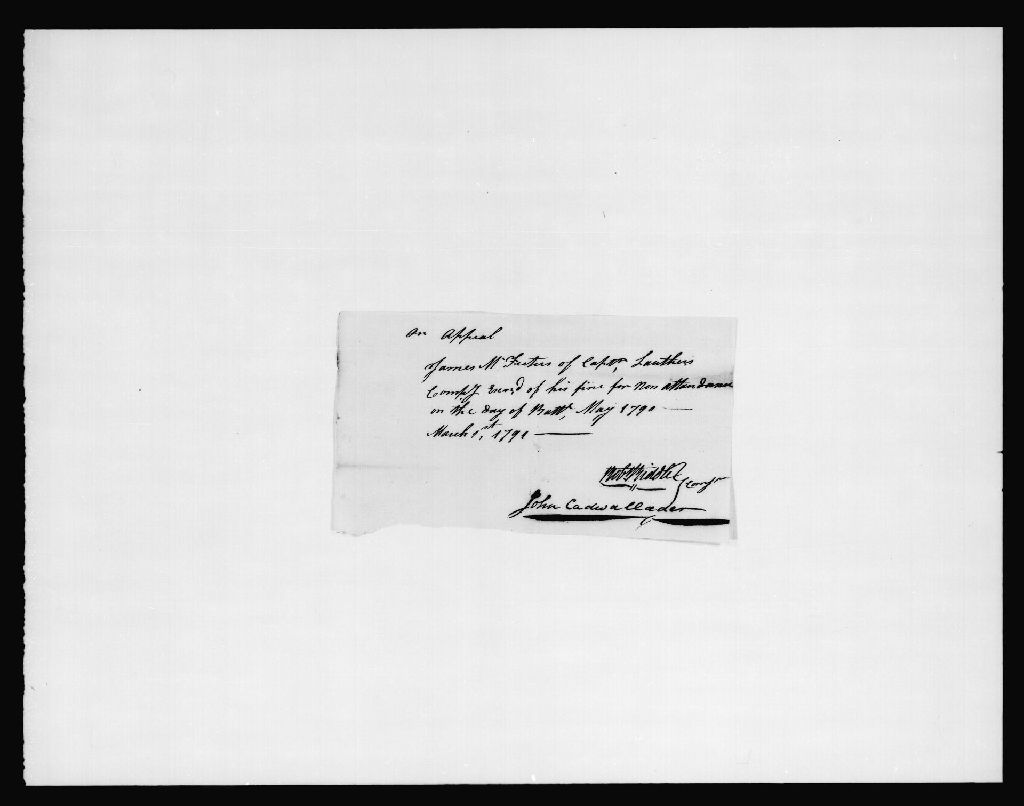 on Appeal
James Mc Feeters of Captn. Lauthers
Compy. Excusd of his fine for Non attendance
on the day of Battn. May 1790 —
March 1st, 1791 —
Robt Riddle
John Cadwallader